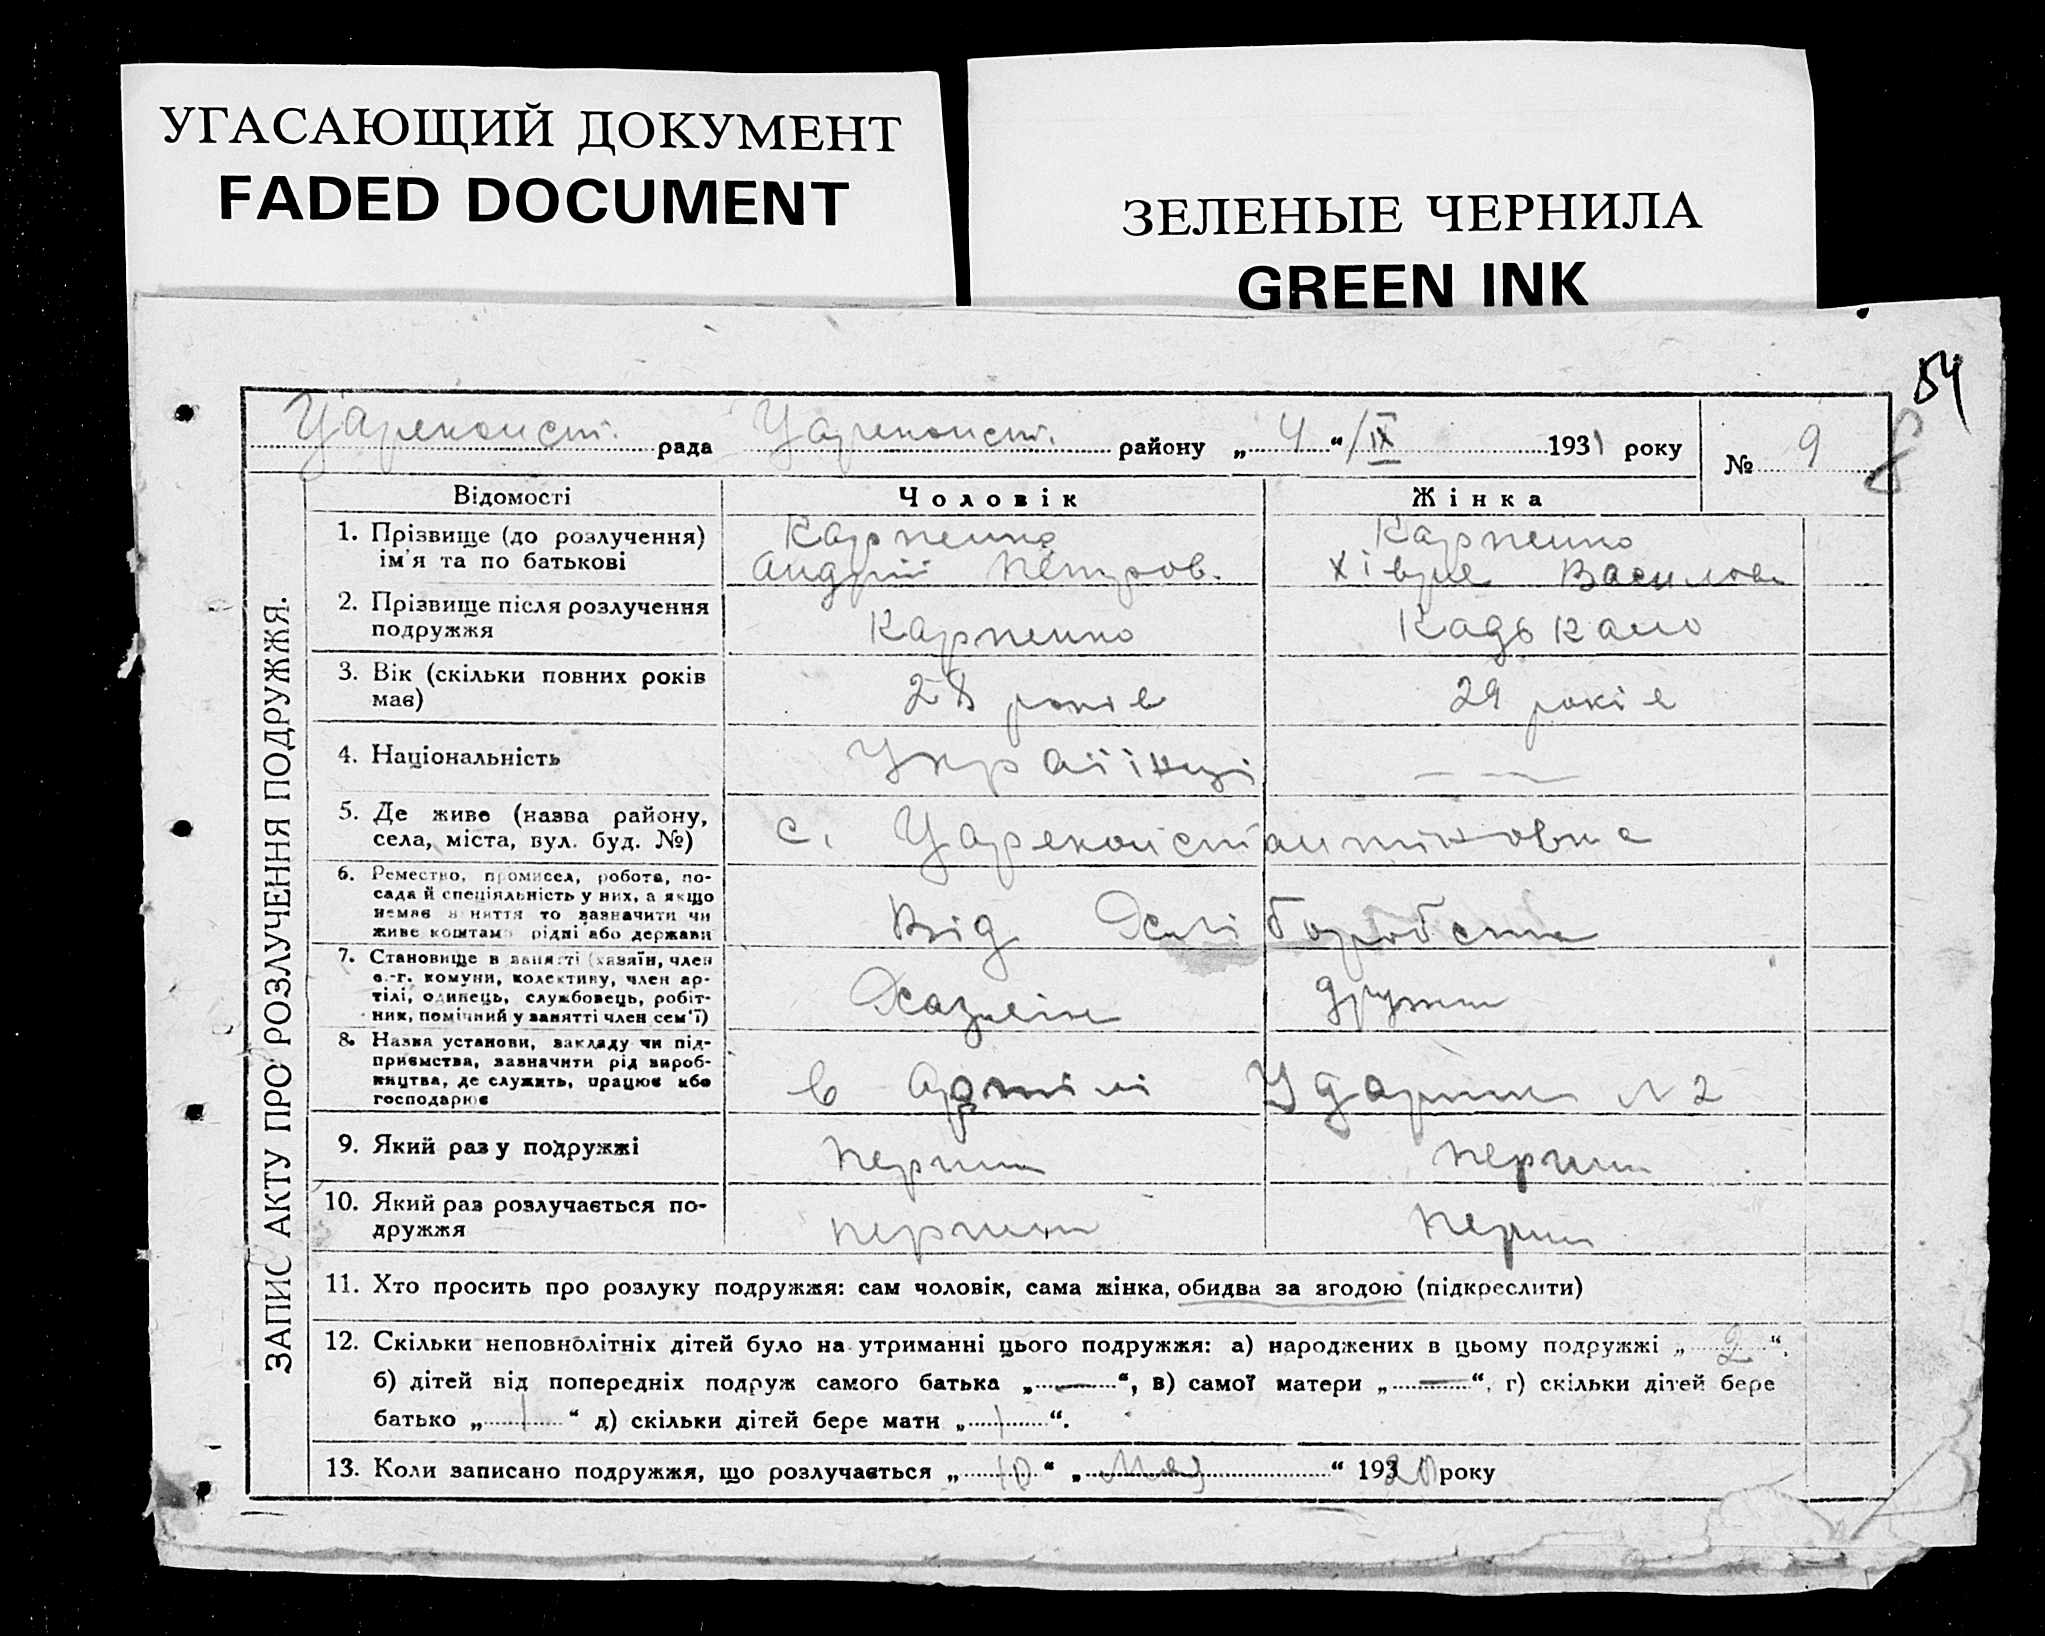 УГАСАЮЩИЙ ДОКУМЕНТ
FADED DOCUMENT
ЗЕЛЕНЫЕ ЧЕРНИЛА
GREEN INK
54
8
Цареконст. рада Цареконст. району „ 4 “ /IX 1931 року № 9
ЗАПИС АКТУ ПРО РОЗЛУЧЕННЯ ПОДРУЖЖЯ.
Відомості Чоловік Жінка
1. Прізвище (до розлучення) Карпенко Карпенко
ім'я та по батькові Андрій Петров. Хівря Василов.
2. Прізвище після розлучення
подружжя Карпенко Кадькало
3. Вік (скільки повних років
має) 28 років 29 років
4. Національність Українці — —
5. Де живе (назва району,
села, міста, вул. буд. №) с. Цареконстантиновка
6. Ремество, промисел, робота, по-
сада й спеціяльність у них, а якщо
немає заняття то зазначити чи
живе коштами рідні або держави Від Хліборобства
7. Становище в занятті (хазяїн, член
с.-г. комуни, колективу, член ар-
тілі, одинець, службовець, робіт-
ник, помічний у занятті член сем'ї) Хазяїн дружина
8. Назва установи, закладу чи під-
приємства, зазначити рід вироб-
ництва, де служить, працює або
господарює в Артілі Ударник №2
9. Який раз у подружжі перший перший
10. Який раз розлучається по-
дружжя перший перший
11. Хто просить про розлуку подружжя: сам чоловік, сама жінка, обидва за згодою (підкреслити)
12. Скільки неповнолітніх дітей було на утриманні цього подружжя: а) народжених в цьому подружжі „ 2 “,
б) дітей від попередніх подруж самого батька „ — “, в) самої матери „ — “, г) скільки дітей бере
батько „ 1 “ д) скільки дітей бере мати „ 1 “.
13. Коли записано подружжя, що розлучається „ 10 “ „ Мая “ 193 року